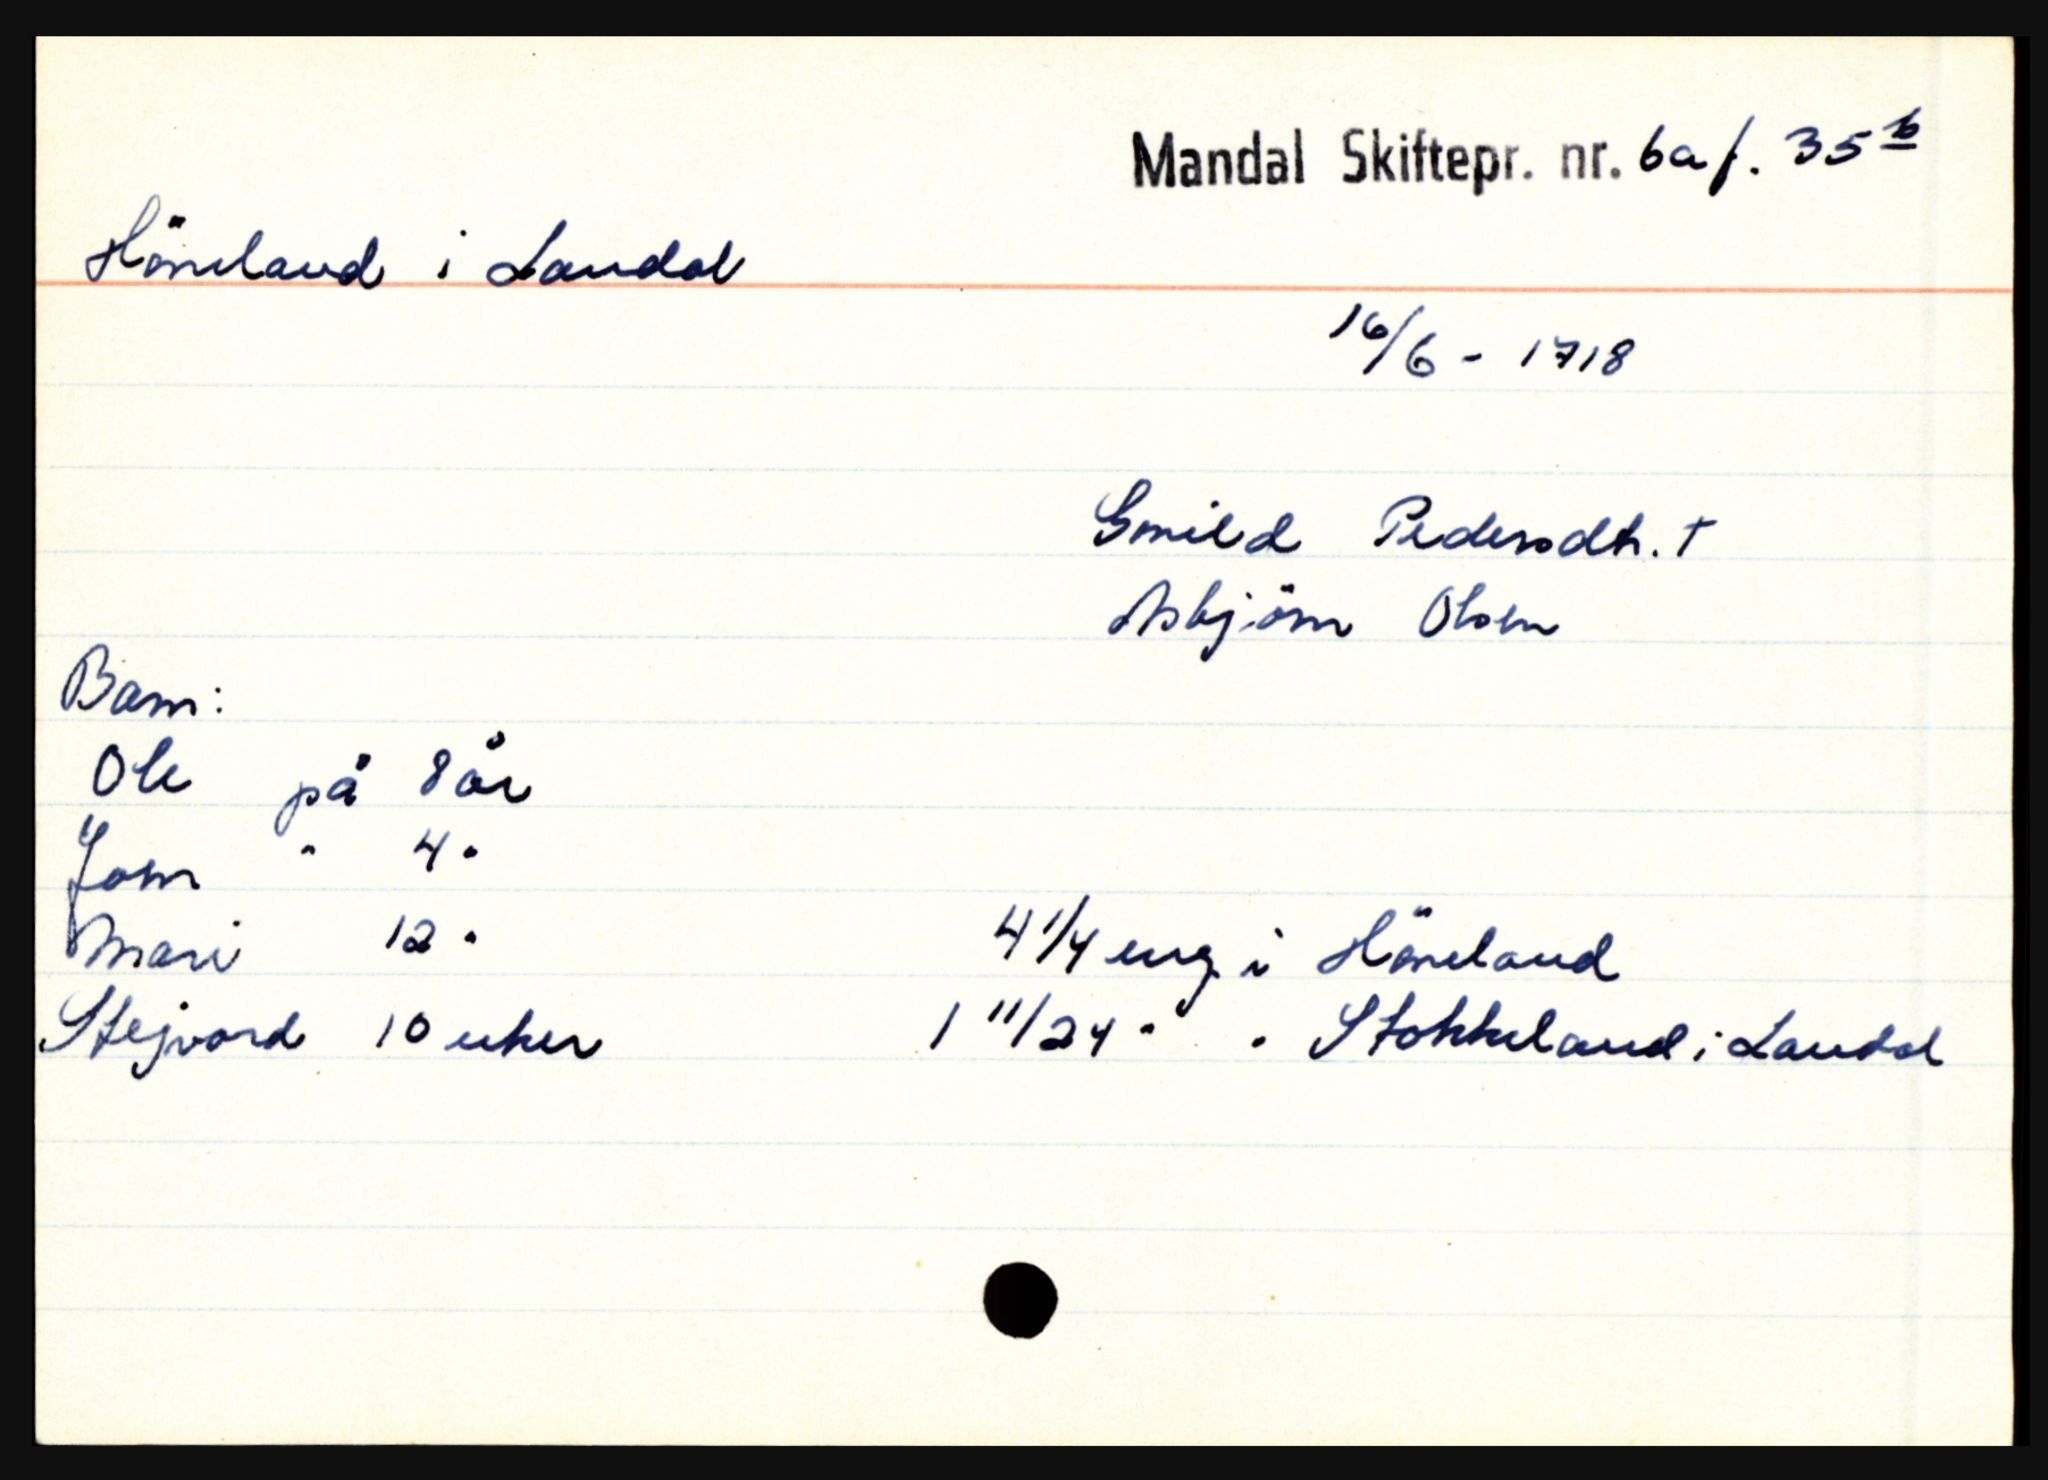 Mandal Skiftepr. nr. 6a f. 35 b
Høneland i Laudal
16/6 - 1718
Gunild Pedersdtr. †
Asbjörn Olsen
Barn:
Ole på 8 år
Joen " 4 "
Mari 12 "
4 1/4 eng. i Høneland
Stejvord 10 uker
1 11/24 " " Stokkeland i Laudal